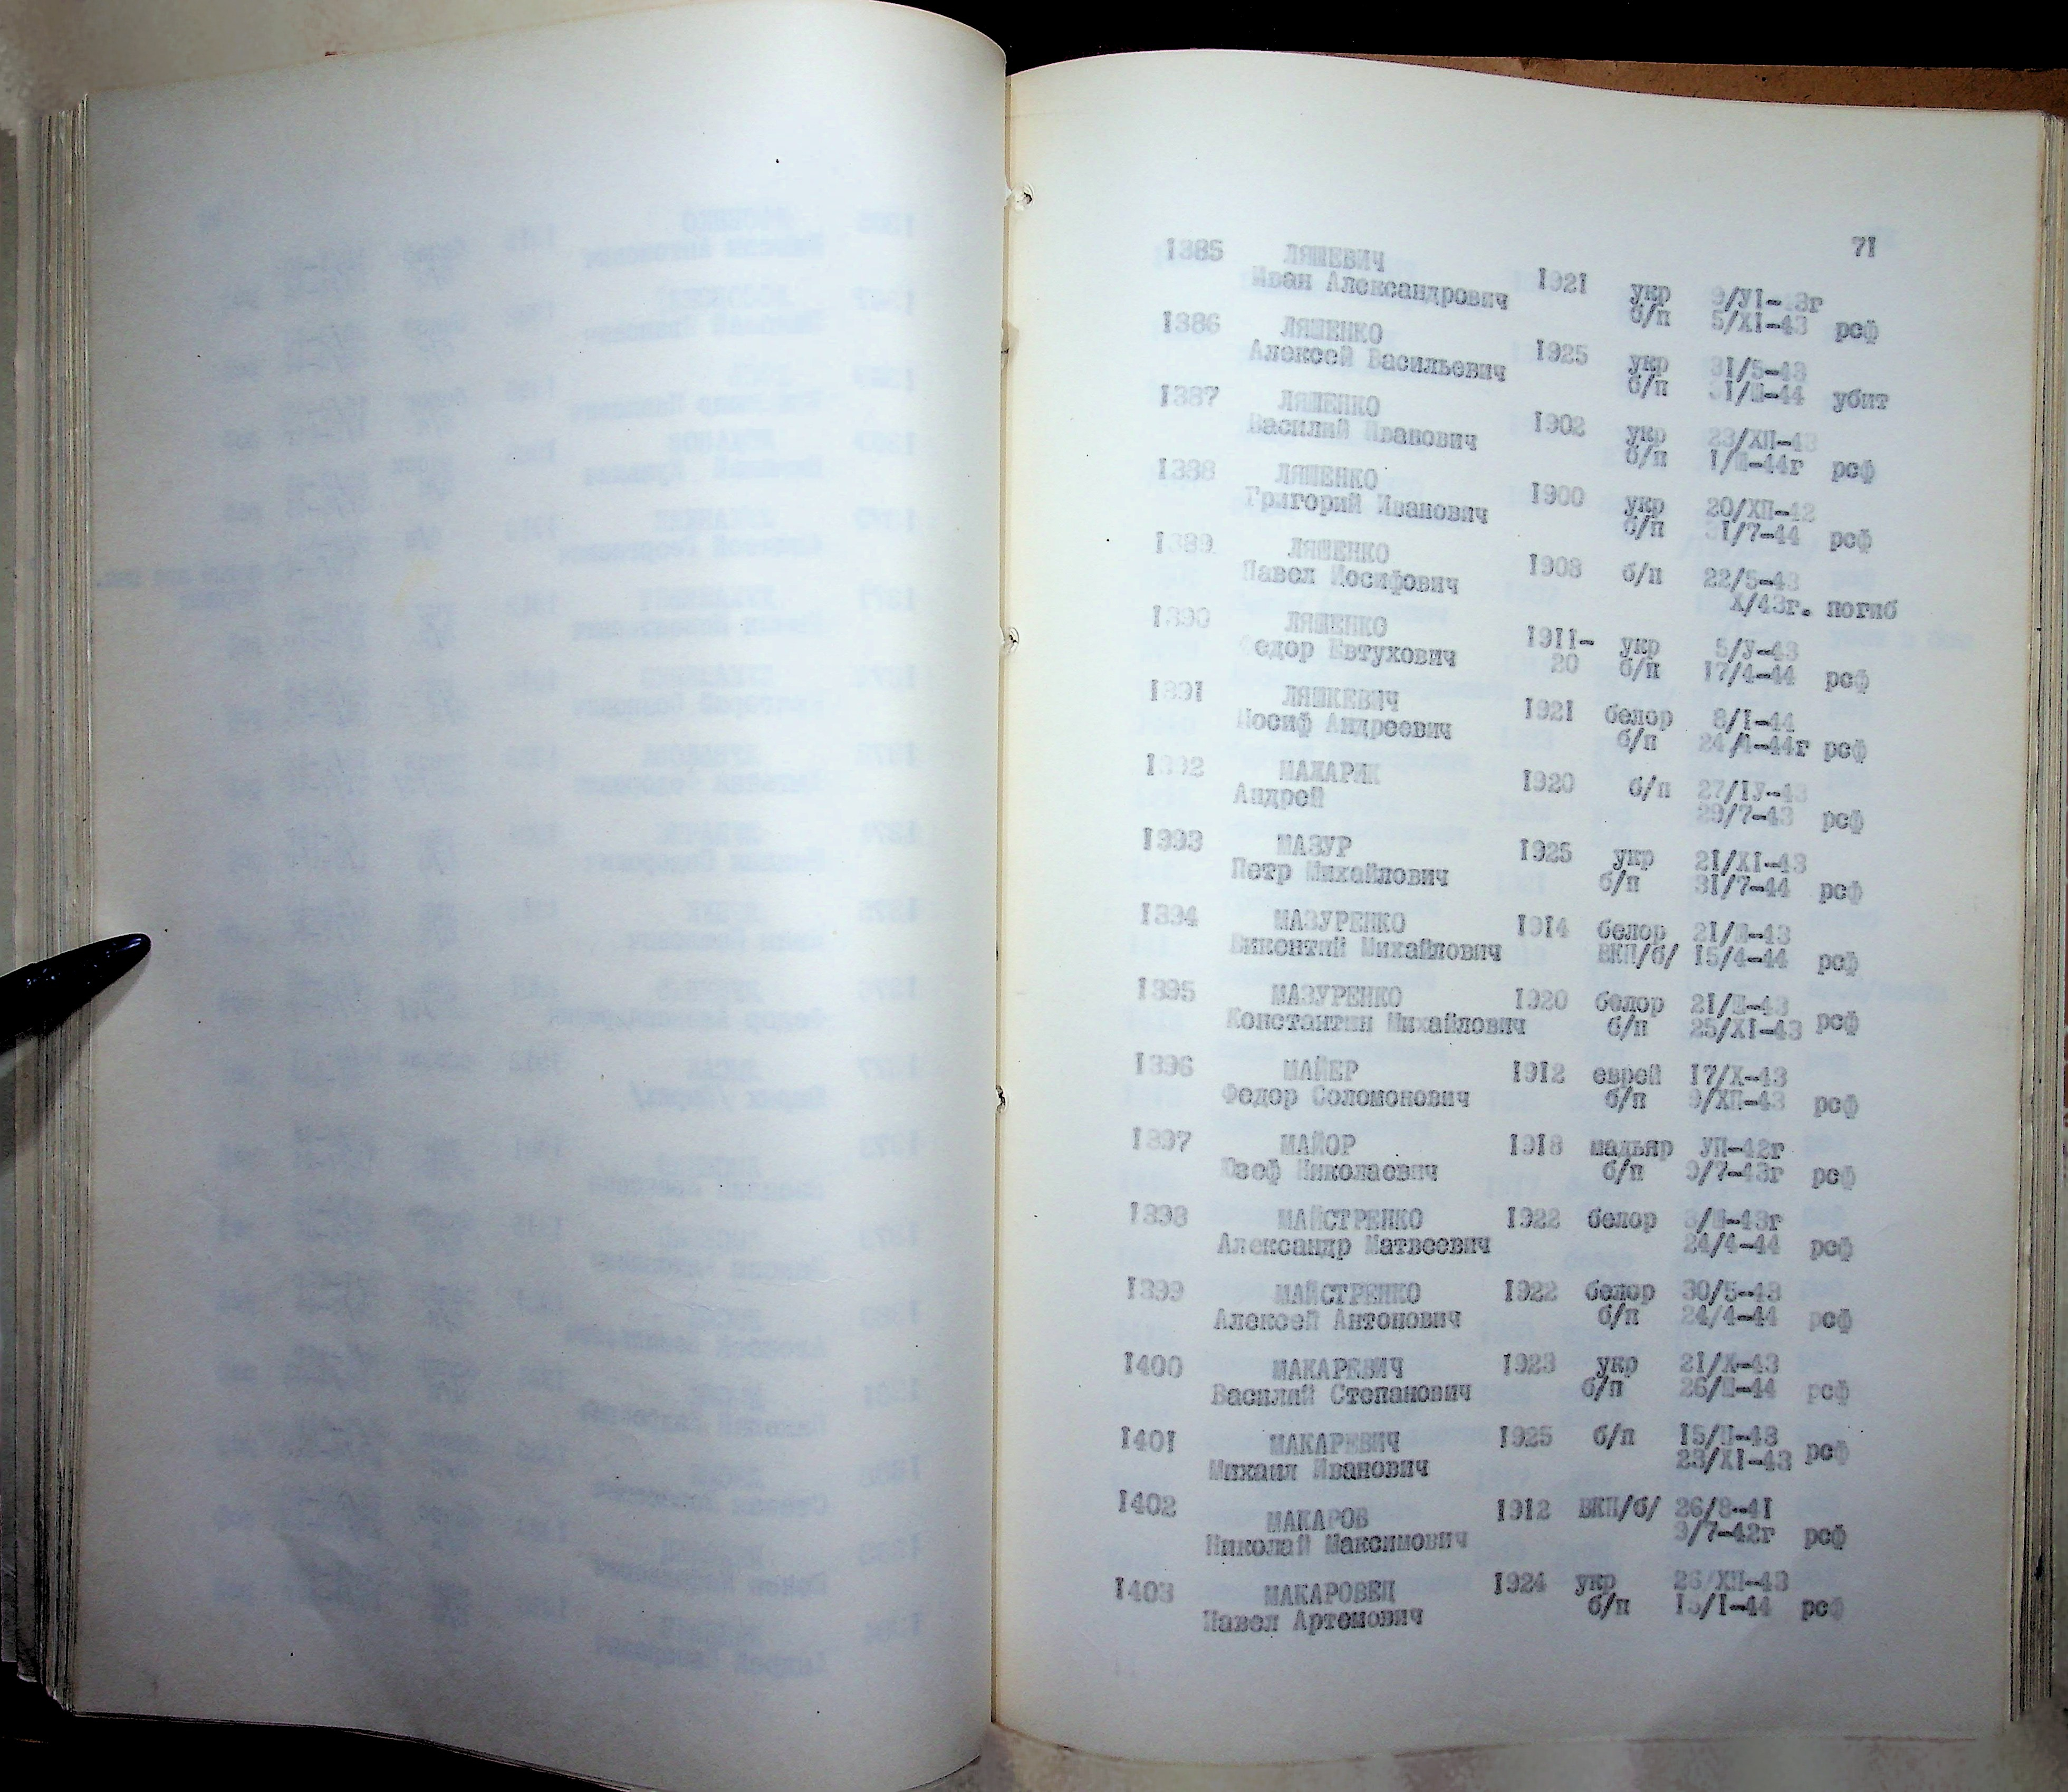 71
1385 ЛЯШЕВИЧ
Иван Александрович 1921 укр 9/У1-43г
б/п 5/XI-43 рсф
1386 ЛЯШЕНКО
Алексей Васильевич 1925 укр 31/5-43
б/п 31/Ш-44 убит
1387 ЛЯШЕНКО
Василий Иванович 1902 укр 23/ХП-43
б/п 1/Ш-44г рсф
1388 ЛЯШЕНКО
Григорий Иванович 1900 укр 20/ХП-42
б/п 31/7-44 рсф
1389 ЛЯШЕНКО
Павел Иосифович 1908 б/п 22/5-43
Х/43г. погиб
1390 ЛЯШЕНКО
Федор Евтухович 1911- укр 5/У-43
20 б/п 17/4-44 рсф
1391 ЛЯШКЕВИЧ
Иосиф Андреевич 1921 белор 8/I-44
б/п 24/4-44г рсф
1392 МАЖАРИК 1920 б/п 27/1У-43
Андрей 29/7-43 рсф
1393 МАЗУР 1925 укр 21/XI-43
Петр Михайлович б/п 31/7-44 рсф
1394 МАЗУРЕНКО 1914 белор 21/Ш-43
Викентий Михайлович ВКП/б/ 15/4-44 рсф
1395 МАЗУРЕНКО 1920 белор 21/Ш-43
Константин Михайлович б/п 25/XI-43 рсф
1396 МАЙЕР 1912 еврей 17/Х-43
Федор Соломонович б/п 9/ХП-43 рсф
1397 МАЙОР 1918 мадьяр УП-42г
Юзеф Николаевич б/п 9/7-43г рсф
1398 МАЙСТРЕНКО 1922 белор 3/Ш-43г
Александр Матвеевич 24/4-44 рсф
1399 МАЙСТРЕНКО 1922 белор 30/5-43
Алексей Антонович б/п 24/4-44 рсф
1400 МАКАРЕВИЧ 1923 укр 21/Х-43
Василий Степанович б/п 26/Ш-44 рсф
1401 МАКАРЕВИЧ 1925 б/п 15/П-43
Михаил Иванович 23/XI-43 рсф
1402 МАКАРОВ 1912 ВКП/б/ 26/8-41
Николай Максимович 9/7-42г рсф
1403 МАКАРОВЕЦ 1924 укр 26/ХП-43
Павел Артемович б/п 15/I-44 рсф